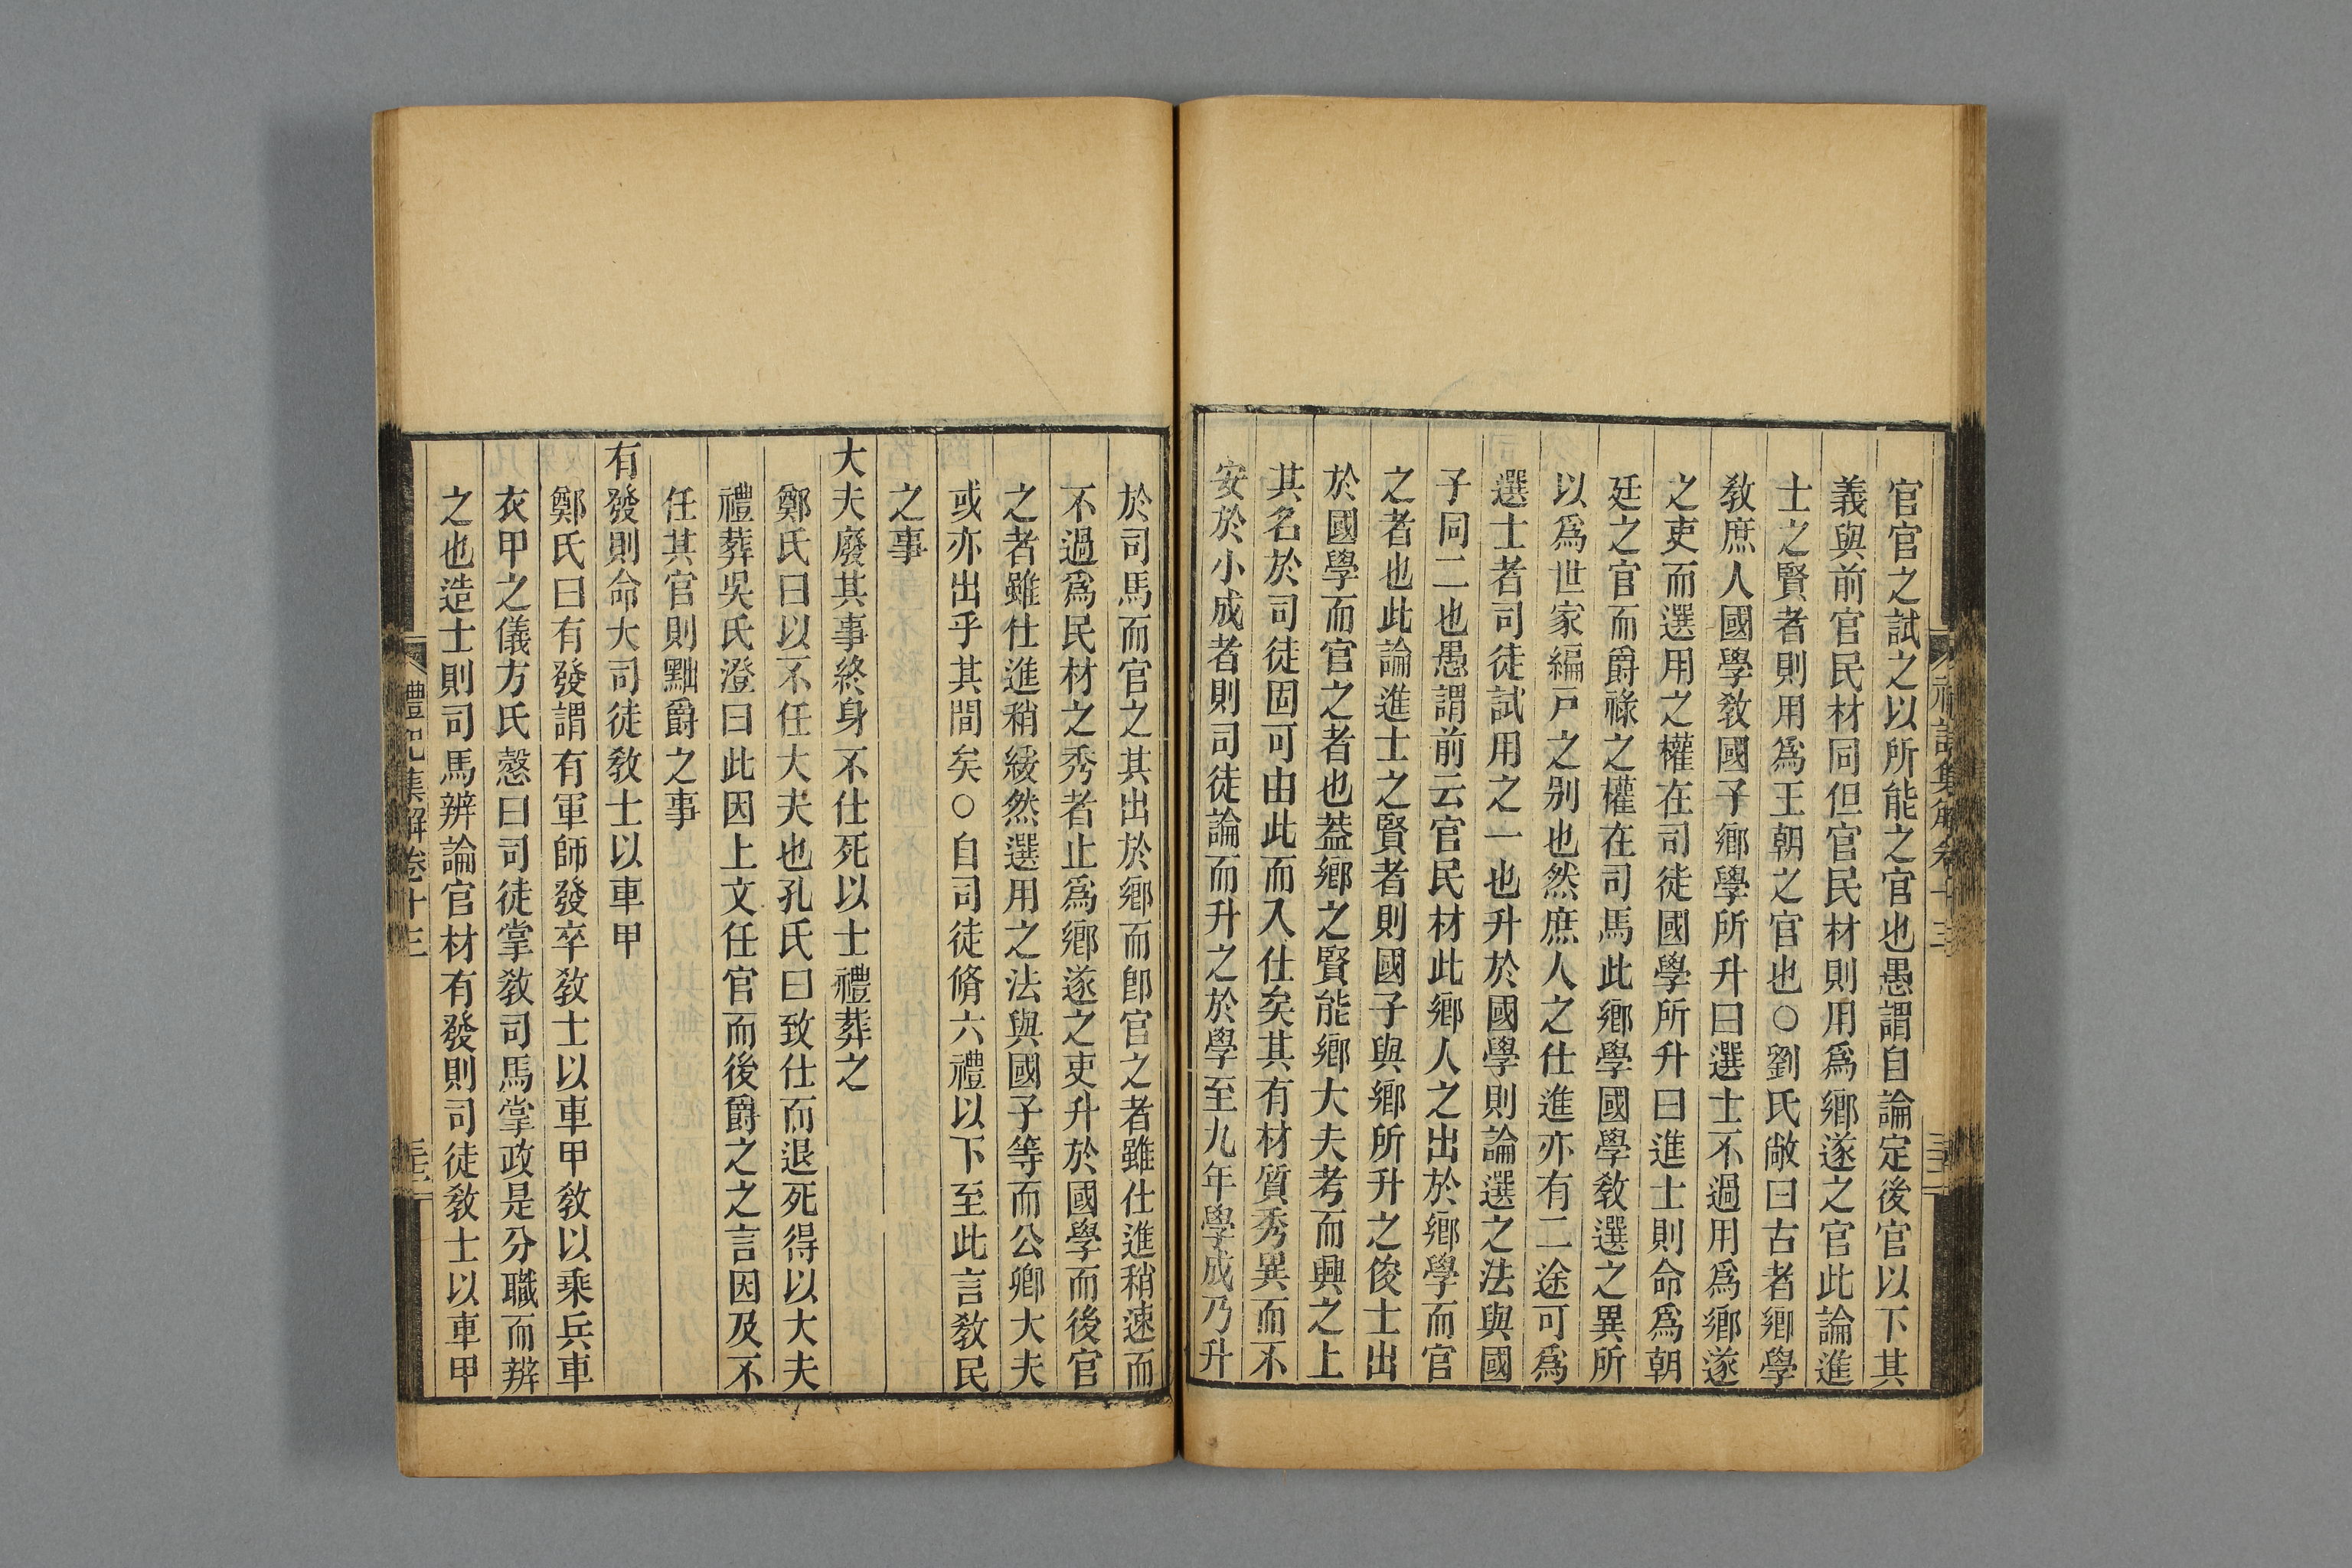 官官之試之以所能之官也愚謂自論定後官以下其
義與前官民材同但官民材則用爲鄕遂之官此論進
士之賢者則用爲王朝之官也○劉氏敞曰古者鄕學
敎庶人國學敎國子鄕學所升曰選士不過用爲鄕遂
之吏而選用之權在司徒國學所升曰進士則命爲朝
廷之官而爵祿之權在司馬此鄕學國學敎選之異所
以爲世家編戸之别也然庶人之仕進亦有二途可爲
選士者司徒試用之一也升於國學則論選之法與國
子同二也愚謂前云官民材此鄕人之出於鄕學而官
之者也此論進士之賢者則國子與鄕所升之俊士出
於國學而官之者也葢鄕之賢能鄕大夫考而興之上
其名於司徒固可由此而入仕矣其有材質秀異而不
安於小成者則司徒論而升之於學至九年學成乃升
於司馬而官之其出於鄕而卽官之者雖仕進稍速而
不過爲民材之秀者止爲鄕遂之吏升於國學而後官
之者雖仕進稍緩然選用之法與國子等而公卿大夫
或亦出乎其間矣○自司徒脩六禮以下至此言敎民
之事
大夫廢其事終身不仕死以士禮葬之
鄭氏曰以不任大夫也孔氏曰致仕而退死得以大夫
禮葬吳氏澄曰此因上文任官而後爵之之言因及不
任其官則黜爵之事
有發則命大司徒敎士以車甲
鄭氏曰有發謂有軍師發卒敎士以車甲敎以乘兵車
衣甲之儀方氏慤曰司徒掌敎司馬掌政是分職而辨
之也造士則司馬辨論官材有發則司徒敎士以車甲
禮記集解卷十三